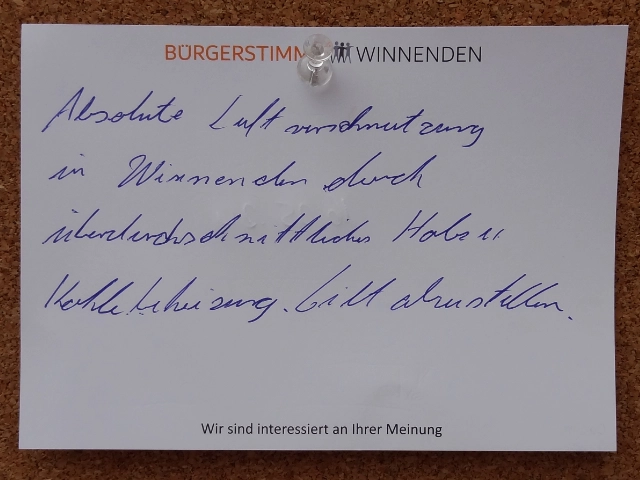 BÜRGERSTIMM WINNENDEN
Absolute Luftverschmutzung
in Winnenden durch
überdurchschnittliches Holz u.
Kohlebeheizung. Gilt abzustellen.
Wir sind interessiert an Ihrer Meinung